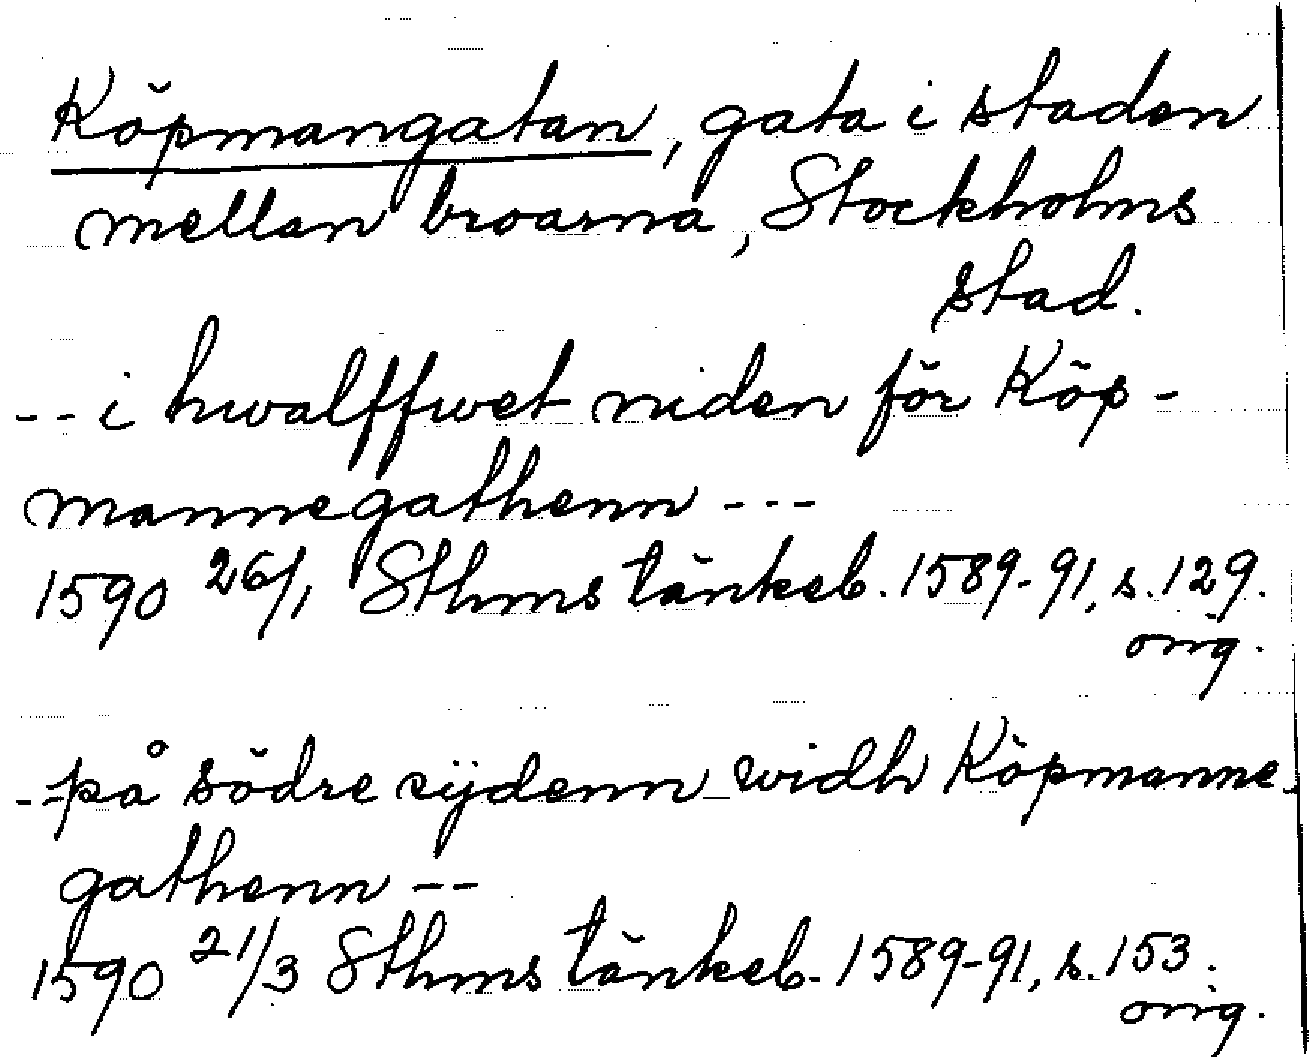 Köpmangatan, gata i staden
mellan broarna, Stockholms
stad.
-- i hwalffwet niden för Köp-
mannegathenn ---
1590 26/1 Sthms tänkeb. 1589-91, s. 129.
orig.
-- på södre sijdenn widh Köpmanne-
gathenn --
1590 21/3 Sthms tänkeb. 1589-91, s. 153.
orig.